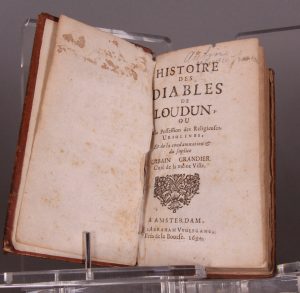 HISTOIRE
DES
DIABLES
DE
LOUDUN,
OU
la Possession des Religieuses
URSULINES,
Et de la condamnation &
du suplice
URBAIN GRANDIER,
Curé de la même Ville.
A AMSTERDAM,
ABRAHAM WOLFGANG,
Près de la Bourse.